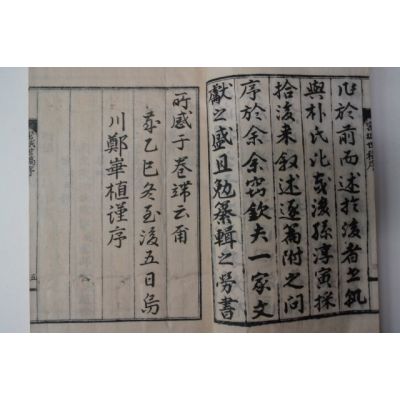 作於前而述於後者孰
與朴氏比哉後孫淳寅採
拾後来叙述逐篇附之問
序於余余竊欽夫一家文
獻之盛且勉纂輯之勞書
所感于卷端云爾
歲乙巳冬至後五日烏
川鄭華植謹序
世稿序
五